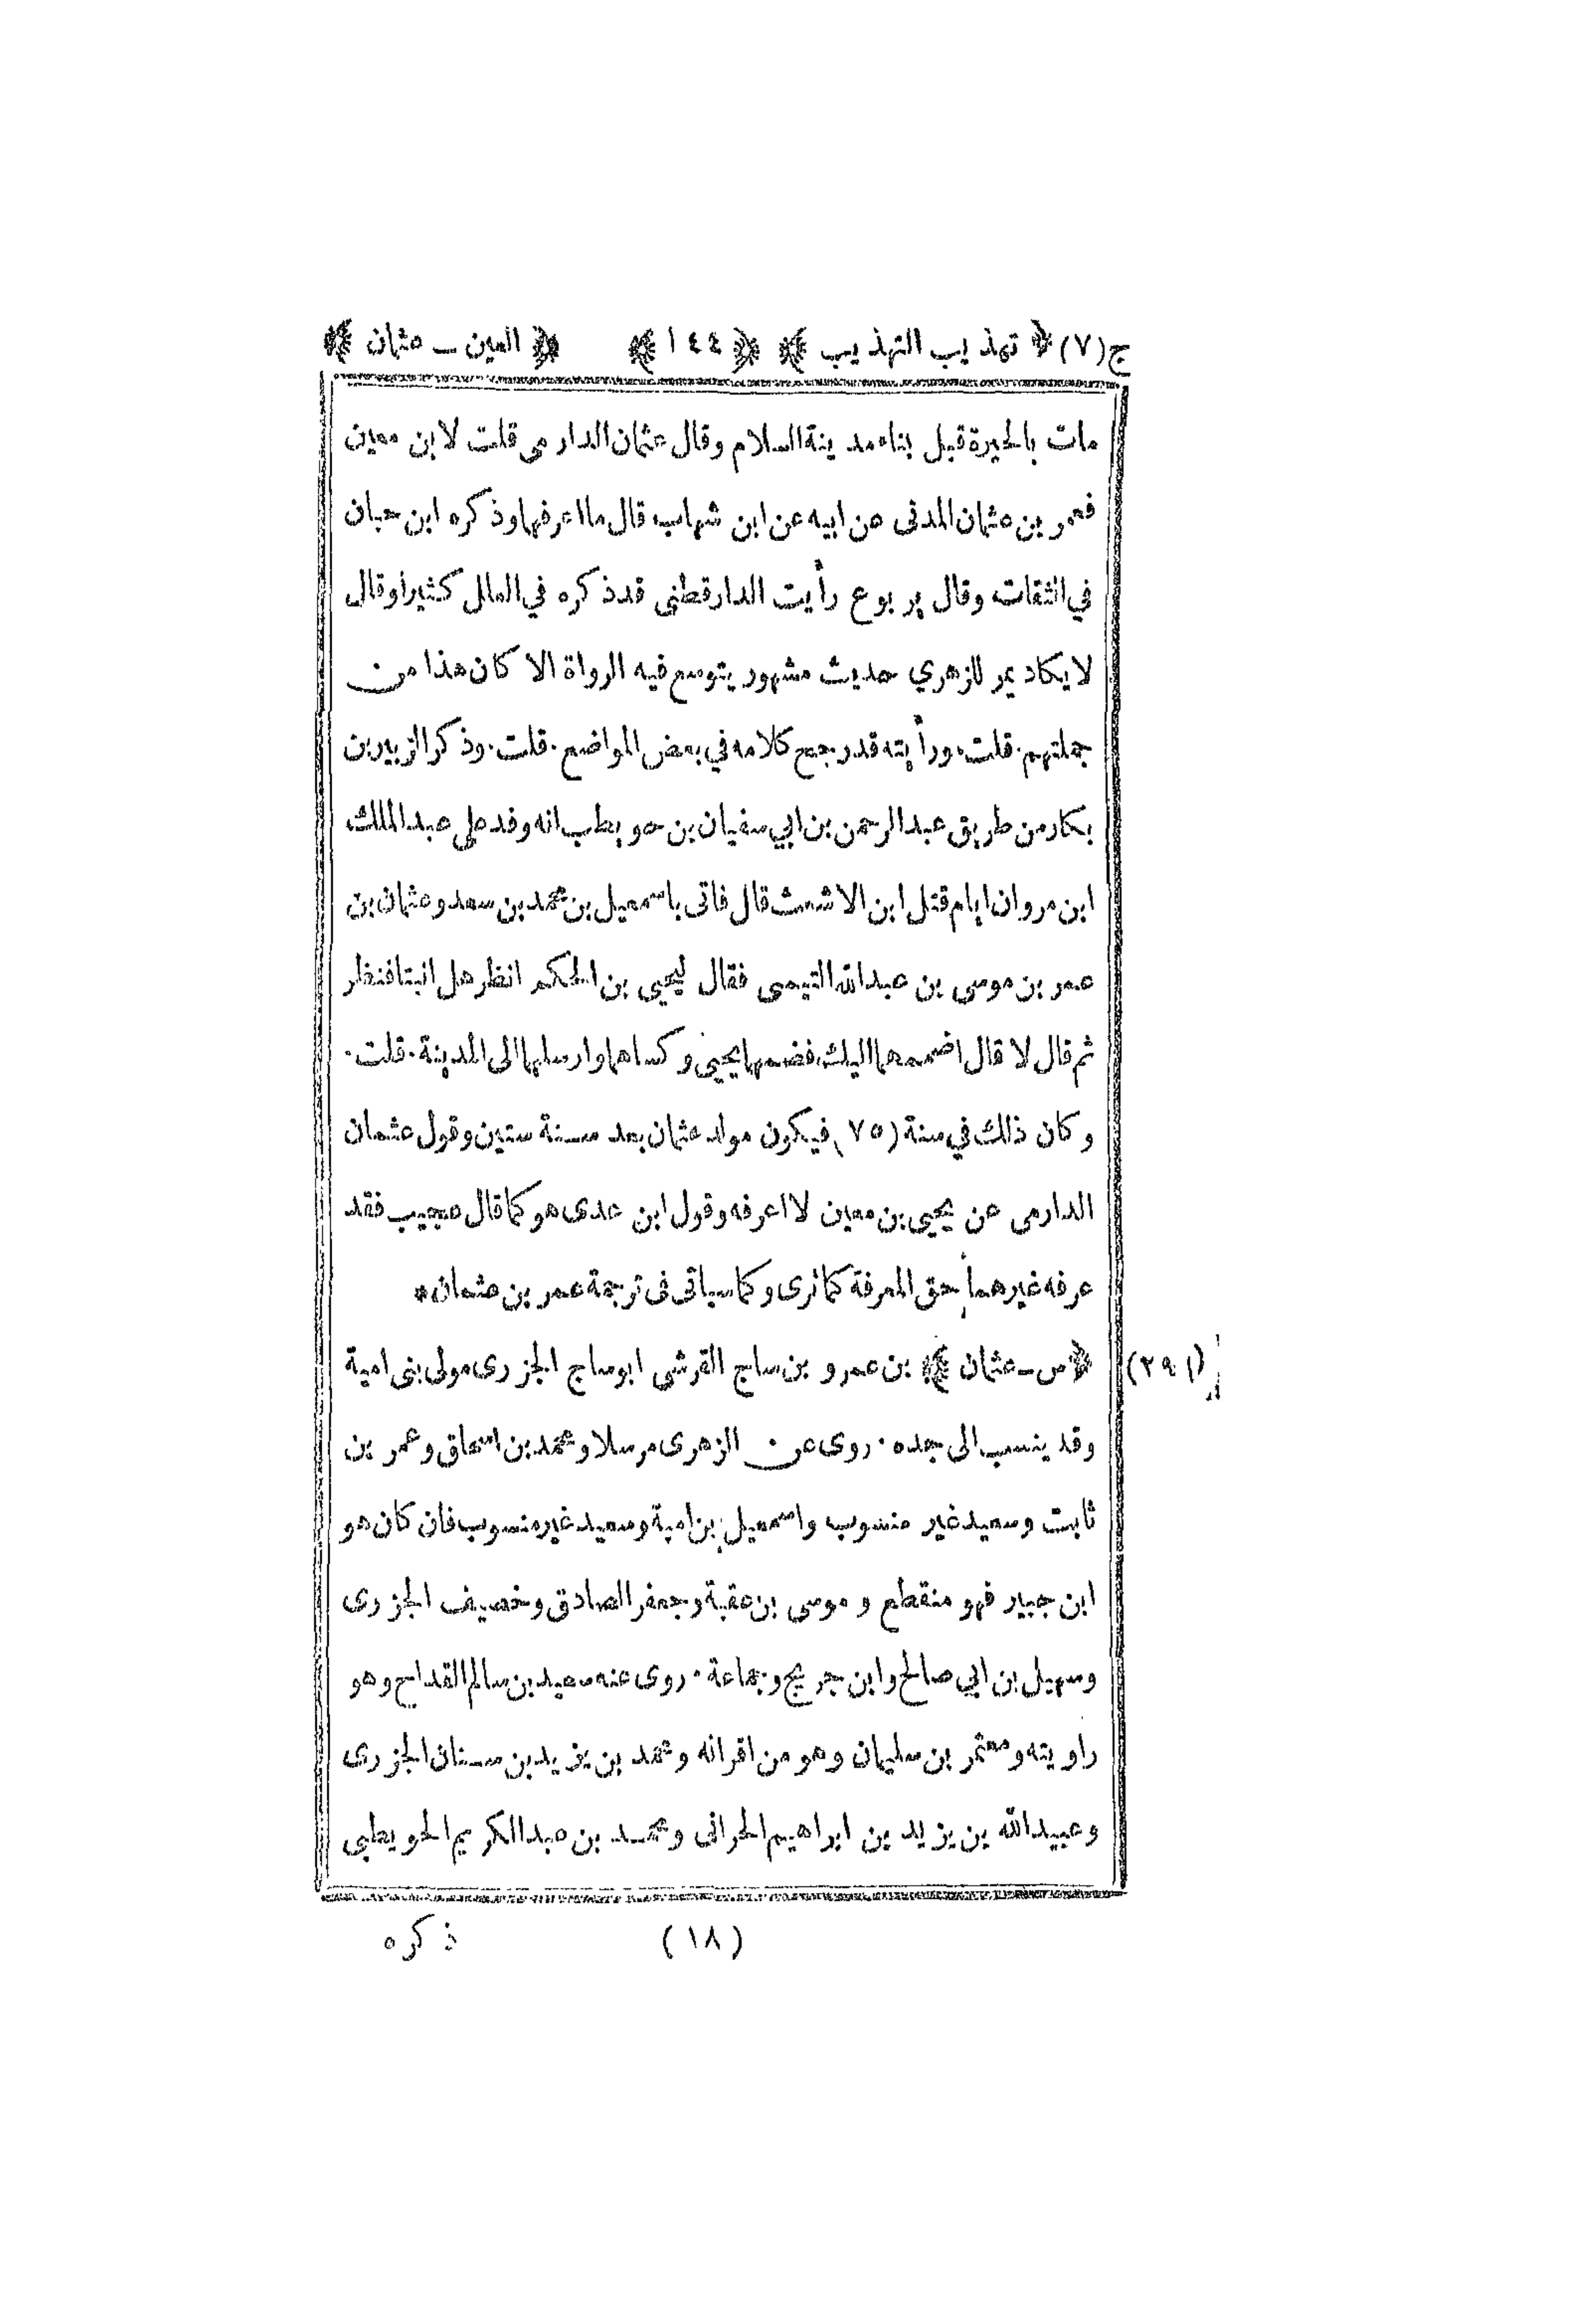 ج(٧) ﴿ تهذيب التهذيب ﴾ ﴿ ١٤٤ ﴾ ﴿ العين ـ عثمان ﴾
مات بالحيرة قبل بناء مدينة السلام وقال عثمان الدارمي قلت لابن معين
فعمر بن عثمان المدني عن ابيه عن ابن شهاب قال ما اعرفهما وذكره ابن حبان
في الثقات وقال يربوع رأيت الدارقطني قد ذكره في العلل كثيرا وقال
لا يكاد يمر للزهري حديث مشهور يتوسع فيه الرواة الا كان هذا من
جملتهم. قلت. ورأيته قد رجح كلامه في بعض المواضع. قلت. وذكر الزبير بن
بكار من طريق عبد الرحمن بن ابي سفيان بن حويطب انه وفد على عبد الملك
ابن مروان ايام قتل ابن الاشعث قال فاتى باسمعيل بن محمد بن سعد وعثمان بن
عمر بن موسى بن عبدالله التيمى فقال ليحيى بن الحكم انظر هل انبتا فنظر
ثم قال لا قال اضممهما اليك فضمهما يحيى وكساهما وارسلهما الى المدينة. قلت.
وكان ذلك في سنة (٧٥) فيكون مولد عثمان بعد سنة ستين وقول عثمان
الدارمى عن يحيى بن معين لا اعرفه وقول ابن عدى هو كما قال عجيب فقد
عرفه غيرهما حق المعرفة كما ترى وكما سياتى فى ترجمة عمر بن عثمان*
(٢٩١) ﴿س ـ عثمان﴾ بن عمرو بن ساج القرشي ابو ساج الجزرى مولى بنى امية
وقد ينسب الى جده. روى عن الزهرى مرسلا ومحمد بن اسحاق وعمر بن
ثابت وسعيد غير منسوب واسمعيل بن امية وسعيد غير منسوب فان كان هو
ابن جبير فهو منقطع وموسى بن عقبة وجعفر الصادق وخصيف الجزرى
وسهيل بن ابي صالح وابن جريج وجماعة. روى عنه سعيد بن سالم القداح وهو
راويته ومعتمر بن سليمان وهو من اقرانه ومحمد بن يزيد بن سنان الجزرى
وعبيدالله بن يزيد بن ابراهيم الحرانى ومحمد بن عبد الكريم الحويطبي
(١٨) ذكره